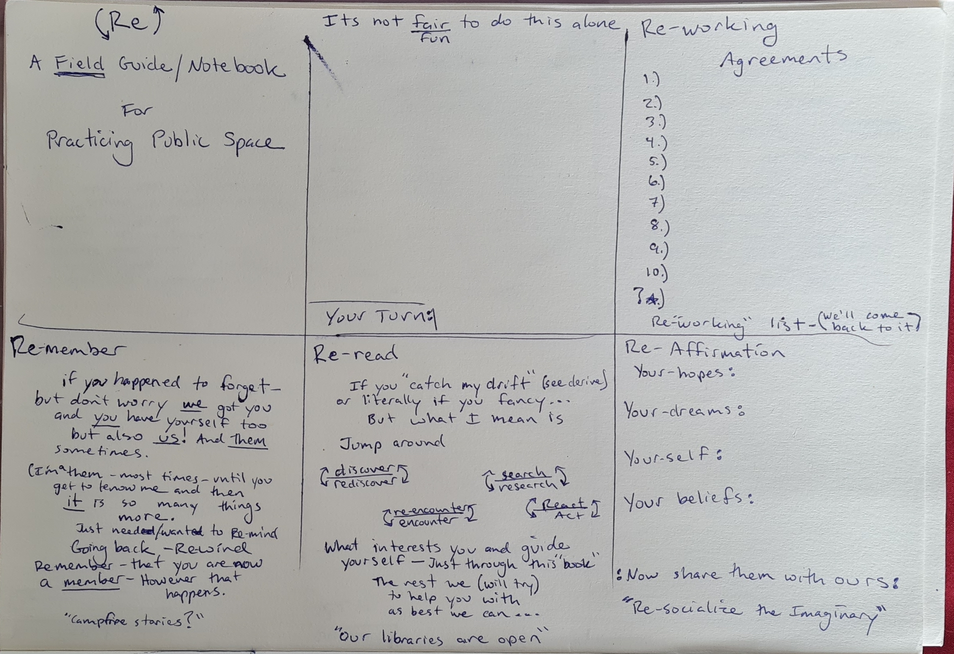 (Re)
A Field Guide/Notebook
For
Practicing Public Space
Its not fair to do this alone
fun
Your Turn:
Re-working
Agreements
1.)
2.)
3.)
4.)
5.)
6.)
7.)
8.)
9.)
10.)
?.)
Re-"working" list - (we'll come
back to it)
Re-member
if you happened to forget-
but don't worry we got you
and you have yourself too
but also us! And Them
sometimes.
(I'm a them - most times - until you
get to know me and then
it is so many things
more.
Just needed/wanted to Re-mind
Going back - Rewind
Remember - that you are now
a member - However that
happens.
"campfire stories?"
Re-read
If you "catch my drift" (see derive)
or literally if you fancy...
But what I mean is
Jump around
discover
rediscover
search
research
re-encounter
encounter
React
Act
What interests you and guide
yourself - Just through this "book"
The rest we (will try)
to help you with
as best we can...
"Our libraries are open"
Re-Affirmation
Your-hopes:
Your-dreams:
Your-self:
Your beliefs:
:Now share them with ours:
"Re-socialize the Imaginary"